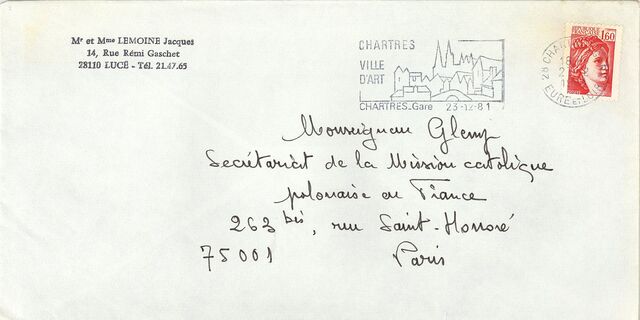 Mr et Mme LEMOINE Jacques
14, Rue Rémi Gaschet
28110 LUCÉ - Tél. 21.47.65
CHARTRES
VILLE
D'ART
CHARTRES-Gare 23-12.81
28 CHARTRES
EURE-ET-LOIR
1,60
Monseigneur Glemp
Secrétariat de la Mission catholique
polonaise en France
263 bis, rue Saint-Honoré
75001 Paris